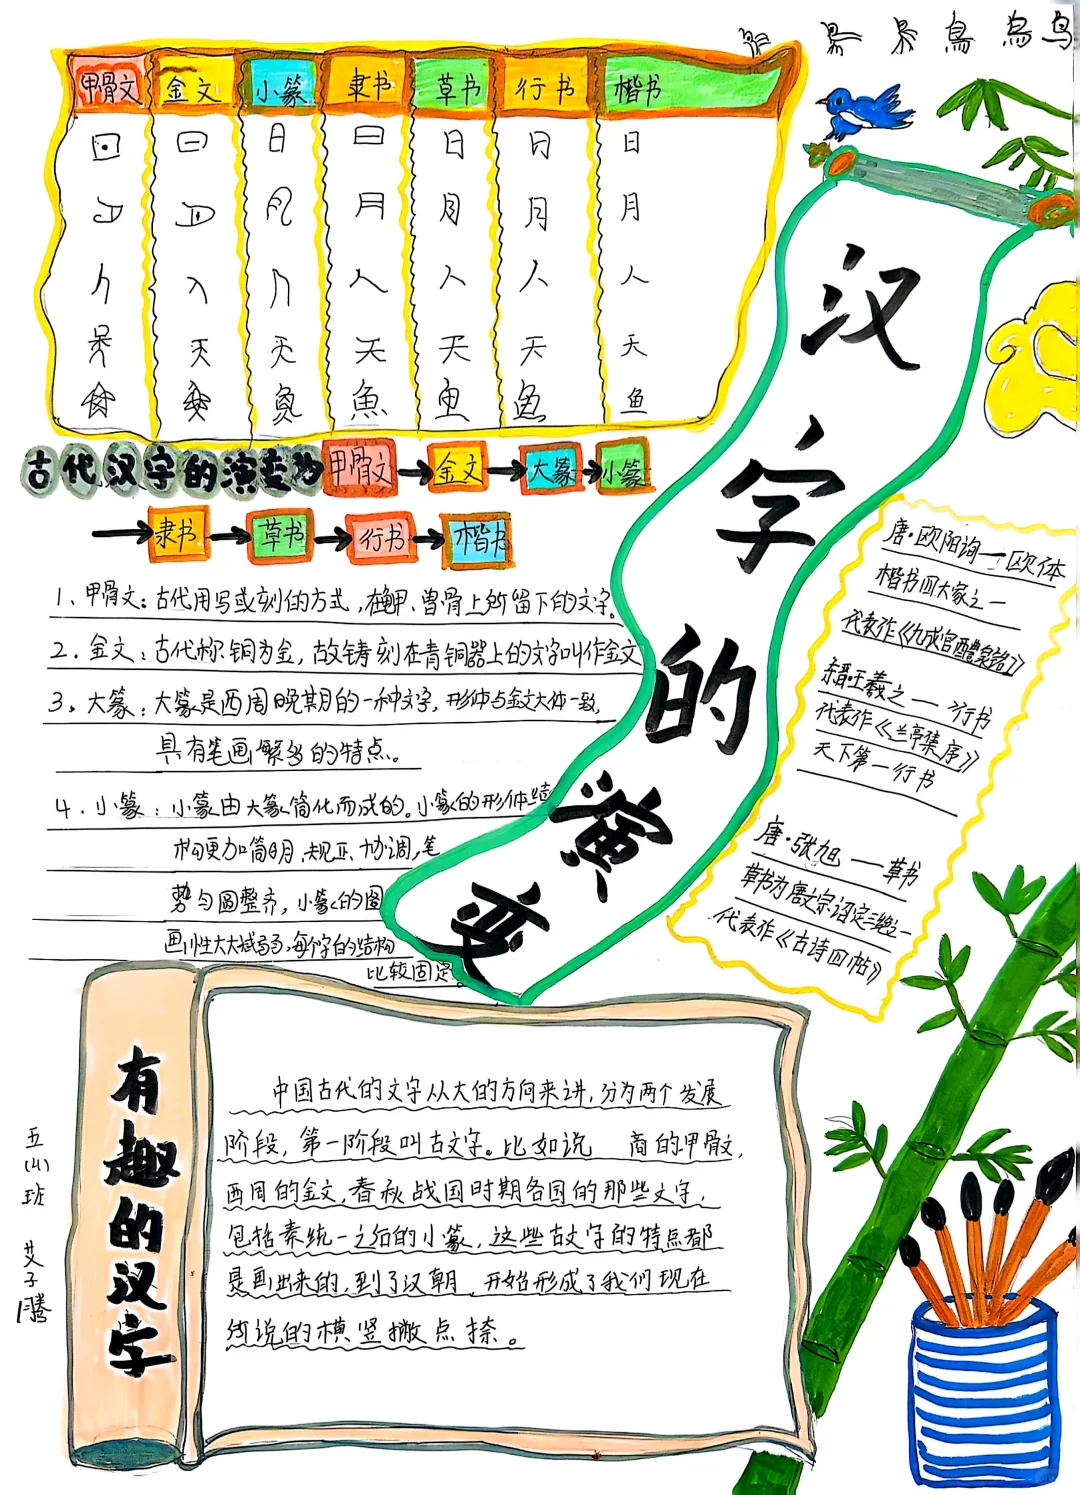 甲骨文 金文 小篆 隶书 草书 行书 楷书
日 日 日 日 日 日 日
月 月 月 月 月 月 月
人 人 人 人 人 人 人
天 天 天 天 天 天 天
魚 鱼 鱼
古代汉字的演变为 甲骨文 金文 大篆 小篆
隶书 草书 行书 楷书
1、甲骨文：古代用写或刻的方式，在龟甲、兽骨上所留下的文字。
2. 金文：古代称铜为金，故铸刻在青铜器上的文字叫作金文
3. 大篆：大篆是西周晚期的一种文字，形体与金文大体一致，
具有笔画繁多的特点。
4. 小篆：小篆由大篆简化而成的。小篆的形体结
构更加简明、规正、协调，笔
势匀圆整齐，小篆的图
画性大大减弱，每个字的结构
比较固定。
汉字的演变
唐·欧阳询一欧体
楷书四大家之一
代表作《九成宫醴泉铭》
东晋·王羲之——行书
代表作《兰亭集序》
天下第一行书
唐·张旭——草书
草书为唐文宗诏定三绝之一
代表作《古诗四帖》
有趣的汉字
中国古代的文字从大的方向来讲，分为两个发展
阶段，第一阶段叫古文字。比如说 商的甲骨文，
西周的金文，春秋战国时期各国的那些文字，
包括秦统一之后的小篆，这些古文字的特点都
是画出来的，到了汉朝，开始形成了我们现在
所说的横竖撇点捺。
五(4)班 艾子腾